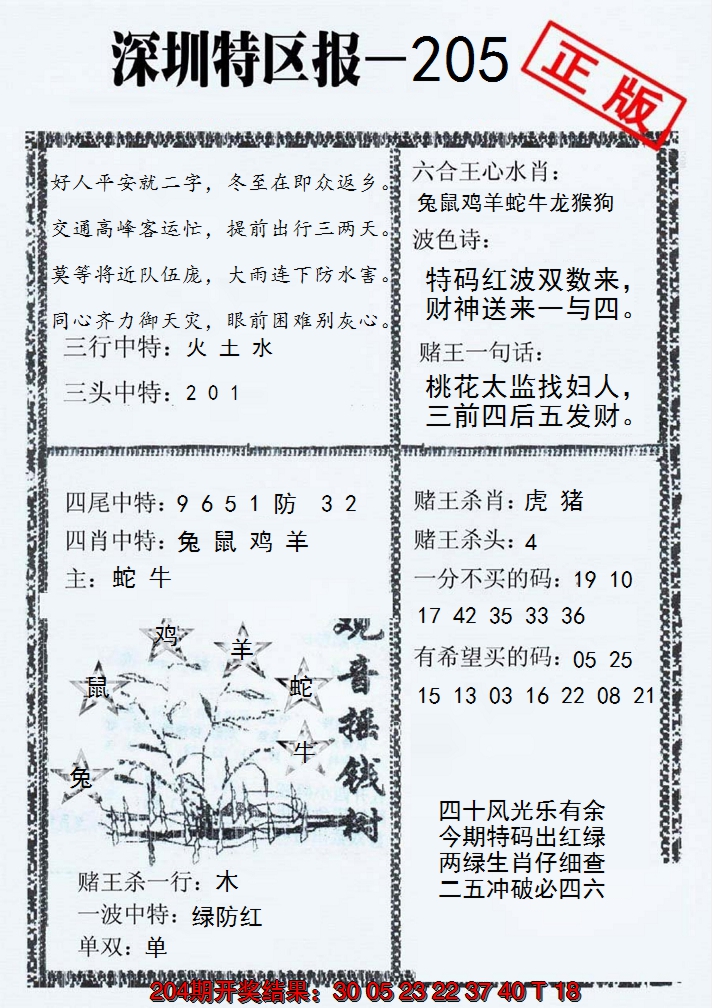 深圳特区报－205
正版
好人平安就二字，冬至在即众返乡。
交通高峰客运忙，提前出行三两天。
莫等将近队伍庞，大雨连下防水害。
同心齐力御天灾，眼前困难别灰心。
三行中特：火 土 水
三头中特：2 0 1
六合王心水肖：
兔鼠鸡羊蛇牛龙猴狗
波色诗：
特码红波双数来，
财神送来一与四。
赌王一句话：
桃花太监找妇人，
三前四后五发财。
四尾中特：9 6 5 1 防 3 2
四肖中特：兔 鼠 鸡 羊
主：蛇 牛
鸡
羊
鼠
蛇
牛
兔
观音摇钱树
赌王杀一行：木
一波中特：绿防红
单双：单
赌王杀肖：虎 猪
赌王杀头：4
一分不买的码：19 10
17 42 35 33 36
有希望买的码：05 25
15 13 03 16 22 08 21
四十风光乐有余
今期特码出红绿
两绿生肖仔细查
二五冲破必四六
204期开奖结果：30 05 23 22 37 40 T 18